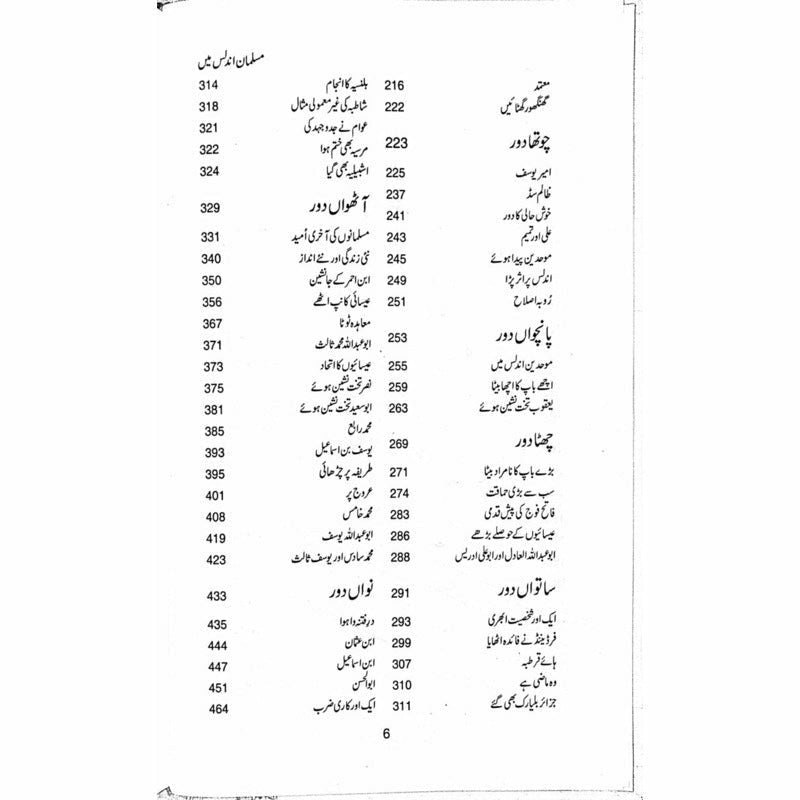 مسلمان اندلس میں
معتمد 216
گھنگھور گھٹائیں 222
چوتھا دور 223
امیر یوسف 225
ظالم سڈ 237
خوش حالی کا دور 241
علی اور تمیم 243
موحدین پیدا ہوئے 245
اندلس پر اثر پڑا 249
رُو بہ اصلاح 251
پانچواں دور 253
موحدین اندلس میں 255
اچھے باپ کا اچھا بیٹا 259
یعقوب تخت نشین ہوئے 263
چھٹا دور 269
بڑے باپ کا نامراد بیٹا 271
سب سے بڑی حماقت 274
فاتح فوج کی پیش قدمی 283
عیسائیوں کے حوصلے بڑھے 286
ابو عبداللہ العادل اور ابو علی ادریس 288
ساتواں دور 291
ایک اور شخصیت ابھری 293
فرڈیننڈ نے فائدہ اٹھایا 299
ہائے قرطبہ 307
وہ ماضی ہے 310
جزائر بلیارک بھی گئے 311
بلنسیہ کا انجام 314
شاطبہ کی غیر معمولی مثال 318
عوام نے جدوجہد کی 321
مرسیہ بھی ختم ہوا 322
اشبیلیہ بھی گیا 324
آٹھواں دور 329
مسلمانوں کی آخری اُمید 331
نئی زندگی اور نئے انداز 340
ابن احمر کے جانشین 350
عیسائی کانپ اٹھے 356
معاہدہ ٹوٹا 367
ابو عبداللہ محمد ثالث 371
عیسائیوں کا اتحاد 373
نصر تخت نشین ہوئے 375
ابو سعید تخت نشین ہوئے 381
محمد رابع 385
یوسف بن اسماعیل 393
طریفہ پر چڑھائی 395
عروج پر 401
محمد خامس 408
ابو عبداللہ یوسف 419
محمد سادس اور یوسف ثالث 423
نواں دور 433
درِ فتنہ وا ہوا 435
ابن عثمان 444
ابن اسماعیل 447
ابوالحسن 451
ایک اور کاری ضرب 464
6